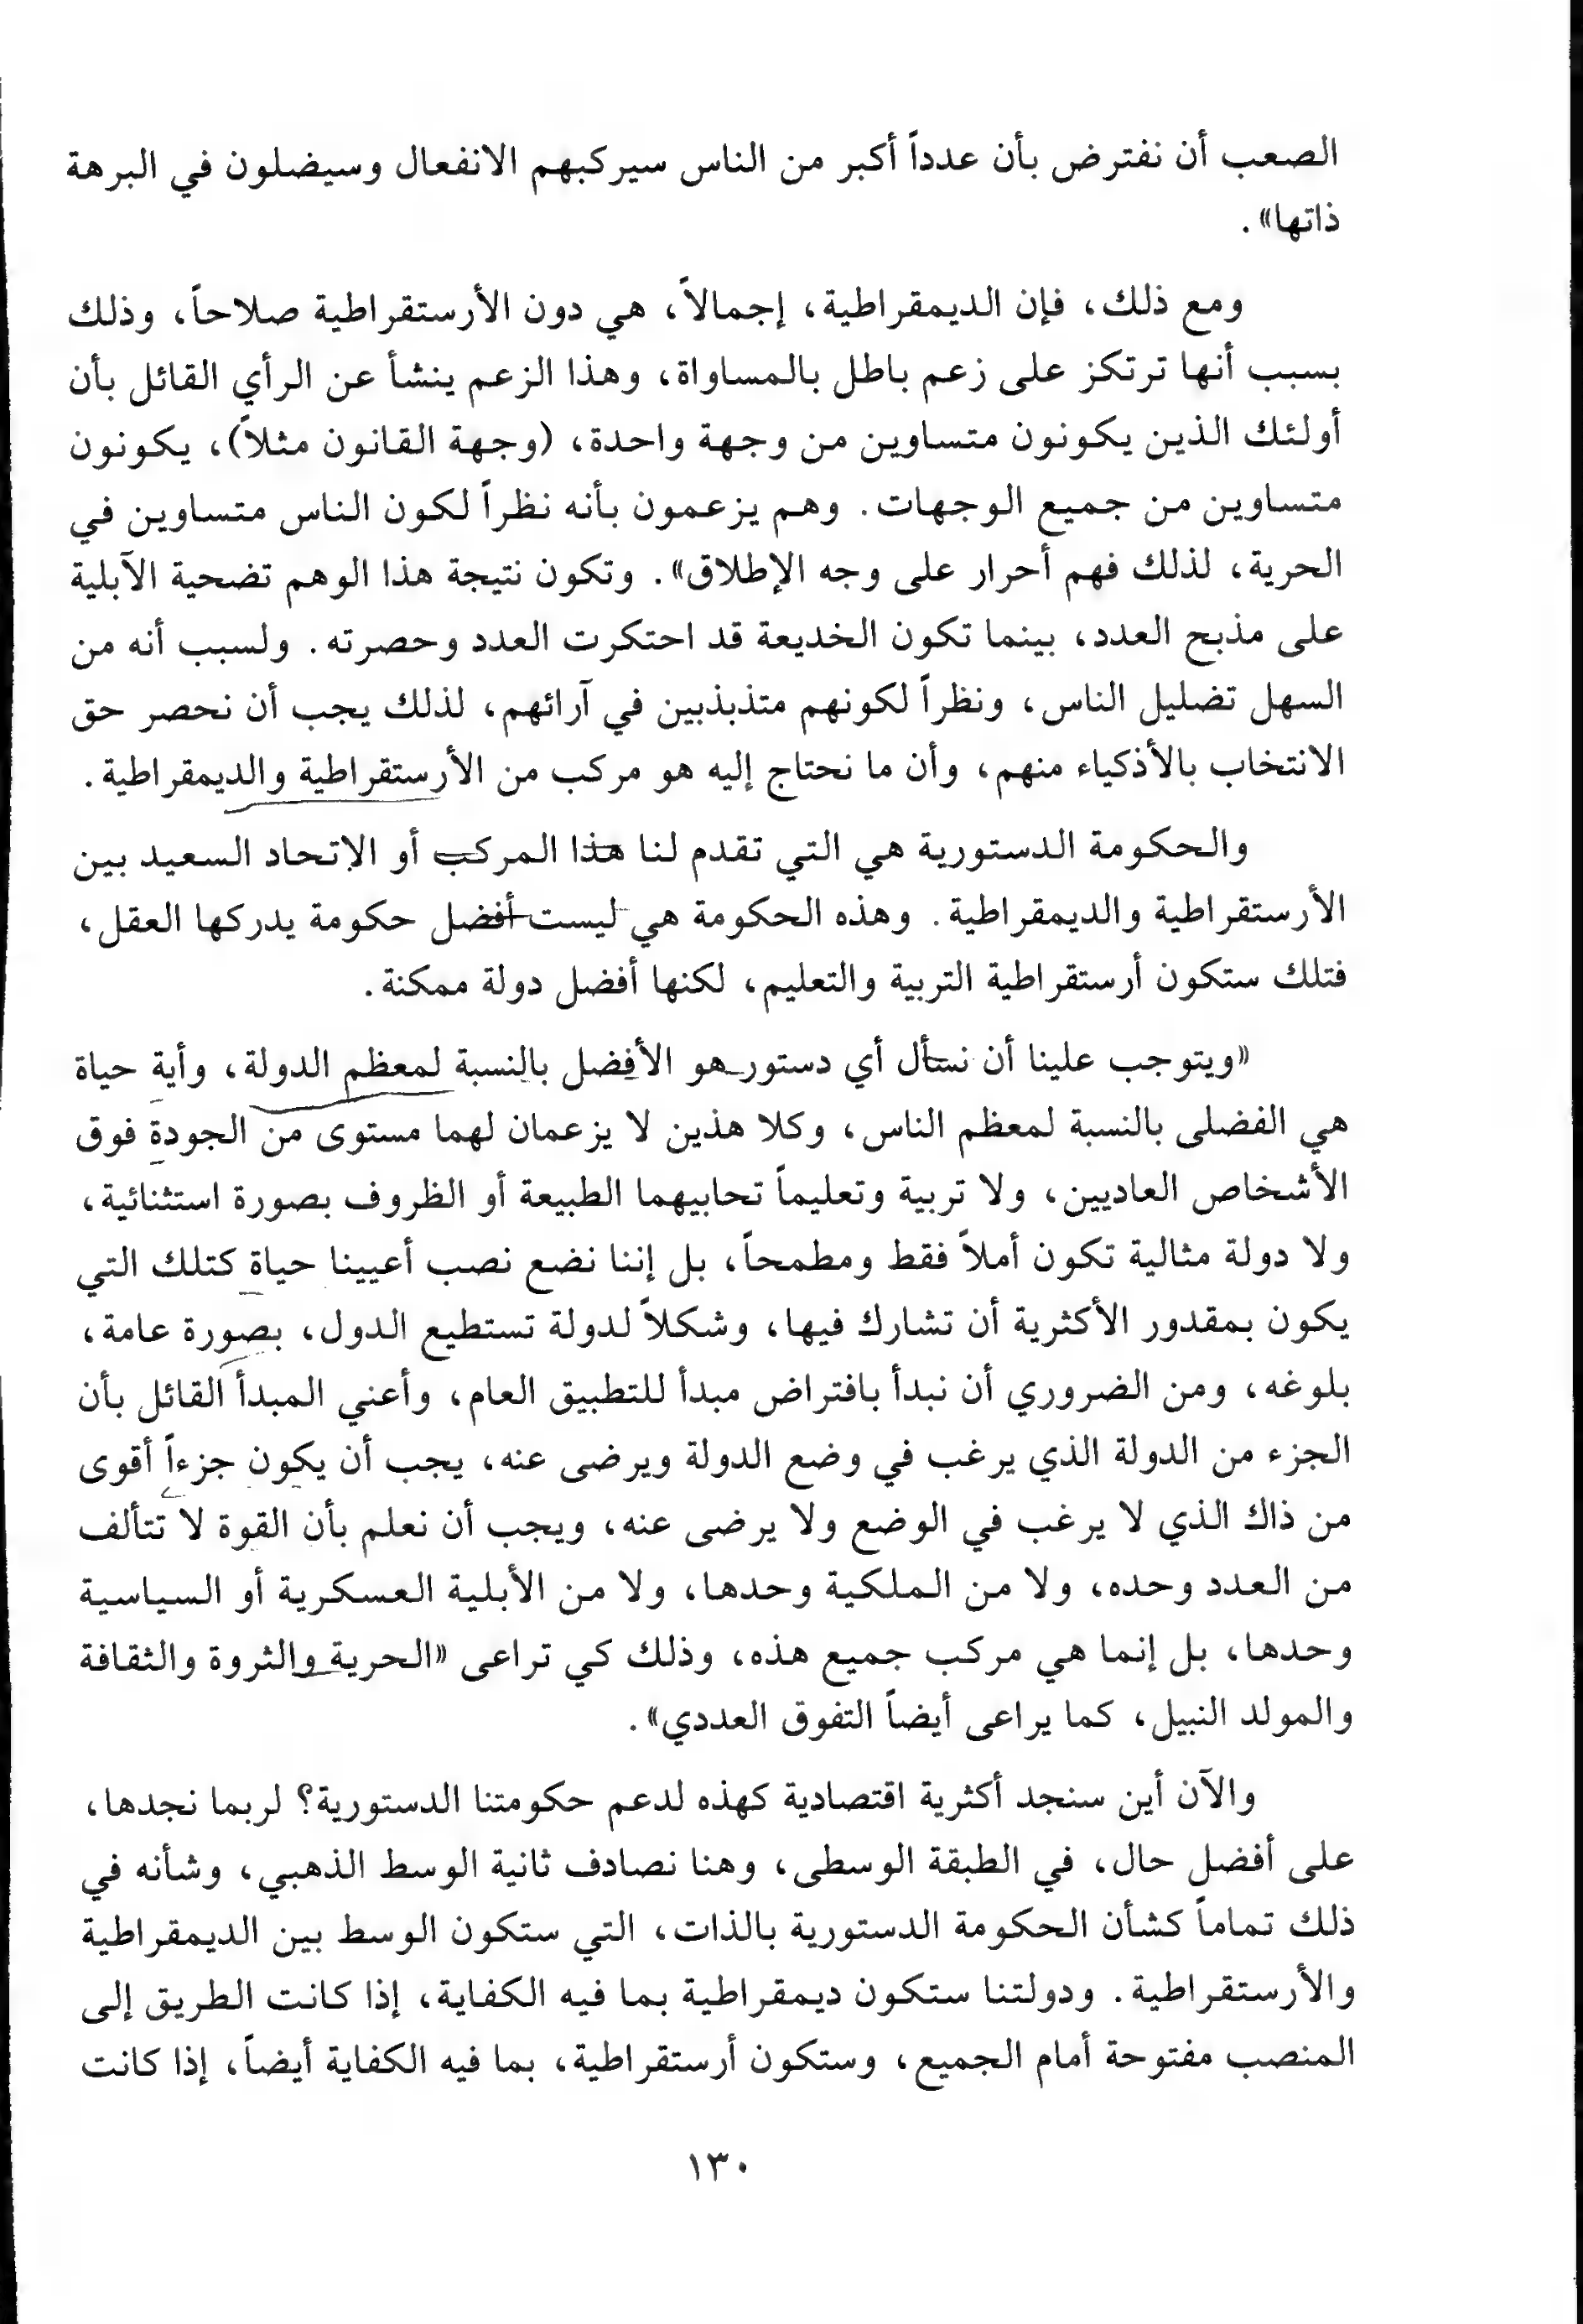 الصعب أن نفترض بأن عدداً أكبر من الناس سيركبهم الانفعال وسيضلون في البرهة
ذاتها».
ومع ذلك، فإن الديمقراطية، إجمالاً، هي دون الأرستقراطية صلاحاً، وذلك
بسبب أنها ترتكز على زعم باطل بالمساواة، وهذا الزعم ينشأ عن الرأي القائل بأن
أولئك الذين يكونون متساوين من وجهة واحدة، (وجهة القانون مثلاً)، يكونون
متساوين من جميع الوجهات. وهم يزعمون بأنه نظراً لكون الناس متساوين في
الحرية، لذلك فهم أحرار على وجه الإطلاق». وتكون نتيجة هذا الوهم تضحية الآبلية
على مذبح العدد، بينما تكون الخديعة قد احتكرت العدد وحصرته. ولسبب أنه من
السهل تضليل الناس، ونظراً لكونهم متذبذبين في آرائهم، لذلك يجب أن نحصر حق
الانتخاب بالأذكياء منهم، وأن ما نحتاج إليه هو مركب من الأرستقراطية والديمقراطية.
والحكومة الدستورية هي التي تقدم لنا هذا المركب أو الإتحاد السعيد بين
الأرستقراطية والديمقراطية. وهذه الحكومة هي ليست أفضل حكومة يدركها العقل،
فتلك ستكون أرستقراطية التربية والتعليم، لكنها أفضل دولة ممكنة.
«ويتوجب علينا أن نسأل أي دستور هو الأفضل بالنسبة لمعظم الدولة، وأية حياة
هي الفضلى بالنسبة لمعظم الناس، وكلا هذين لا يزعمان لهما مستوى من الجودة فوق
الأشخاص العاديين، ولا تربية وتعليماً تحابيهما الطبيعة أو الظروف بصورة استثنائية،
ولا دولة مثالية تكون أملاً فقط ومطمحاً، بل إننا نضع نصب أعيينا حياة كتلك التي
يكون بمقدور الأكثرية أن تشارك فيها، وشكلاً لدولة تستطيع الدول، بصورة عامة،
بلوغه، ومن الضروري أن نبدأ بافتراض مبدأ للتطبيق العام، وأعني المبدأ القائل بأن
الجزء من الدولة الذي يرغب في وضع الدولة ويرضى عنه، يجب أن يكون جزءاً أقوى
من ذاك الذي لا يرغب في الوضع ولا يرضى عنه، ويجب أن نعلم بأن القوة لا تتألف
من العدد وحده، ولا من الملكية وحدها، ولا من الأبلية العسكرية أو السياسية
وحدها، بل إنما هي مركب جميع هذه، وذلك كي تراعى «الحرية والثروة والثقافة
والمولد النبيل، كما يراعى أيضاً التفوق العددي».
والآن أين سنجد أكثرية اقتصادية كهذه لدعم حكومتنا الدستورية؟ لربما نجدها،
على أفضل حال، في الطبقة الوسطى، وهنا نصادف ثانية الوسط الذهبي، وشأنه في
ذلك تماماً كشأن الحكومة الدستورية بالذات، التي ستكون الوسط بين الديمقراطية
والأرستقراطية. ودولتنا ستكون ديمقراطية بما فيه الكفاية، إذا كانت الطريق إلى
المنصب مفتوحة أمام الجميع، وستكون أرستقراطية، بما فيه الكفاية أيضاً، إذا كانت
١٣٠